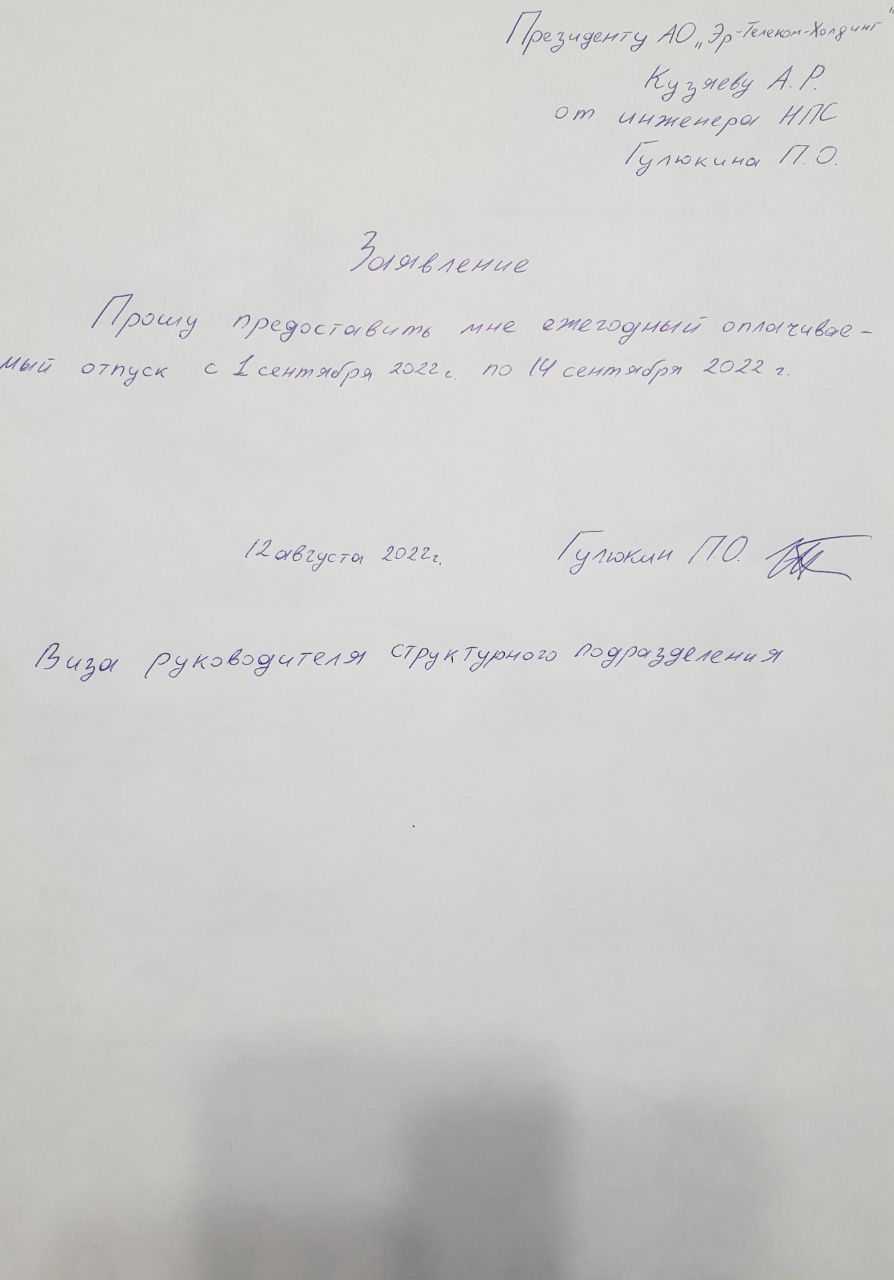 Президенту АО „Эр-Телеком-Холдинг"
Кузяеву А.Р.
от инженера НПС
Гулюкина П.О.
Заявление
Прошу предоставить мне ежегодный оплачивае-
мый отпуск с 1 сентября 2022г. по 14 сентября 2022 г.
12 августа 2022г. Гулюкин П.О.
Виза руководителя структурного подразделения